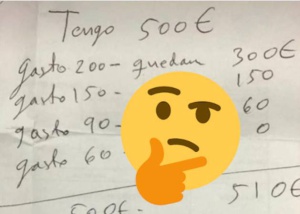 Tengo 500€
gasto 200- quedan 300€
gasto 150- 150
gasto 90- 60
gasto 60 0
500€ 510€